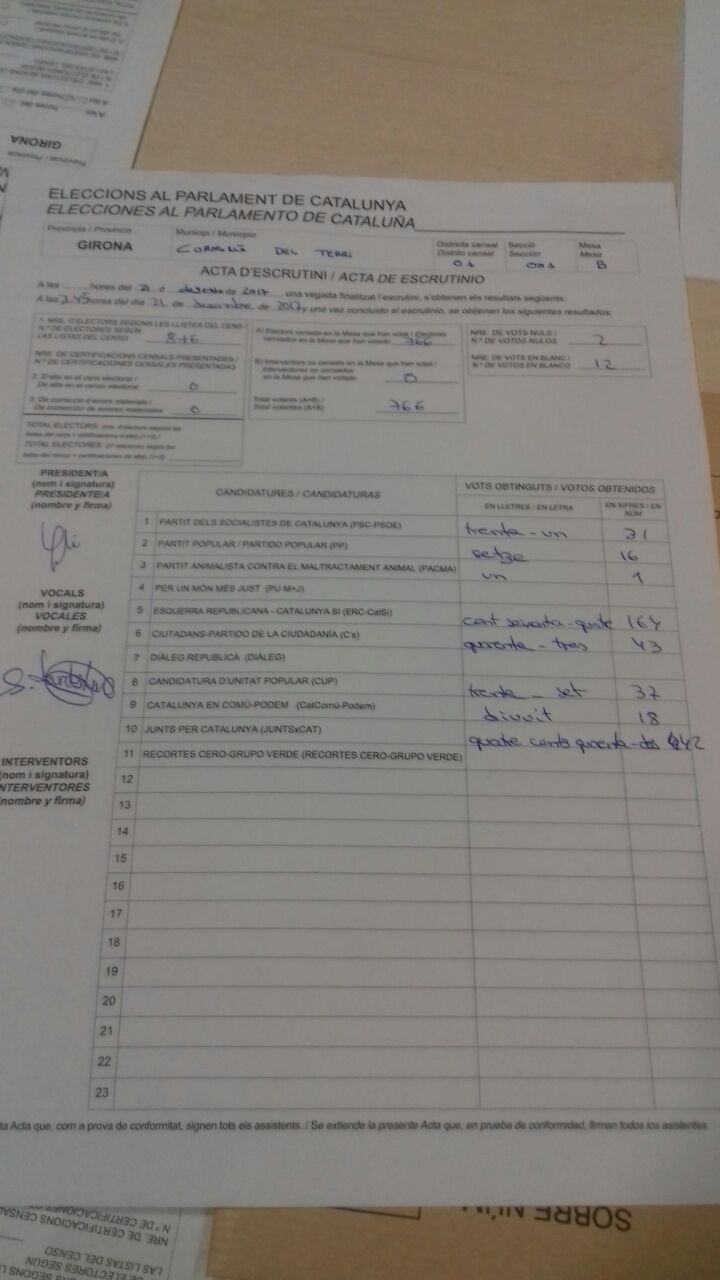 GIRONA
Província / Provincia
ELECCIONS AL PARLAMENT DE CATALUNYA
ELECCIONES AL PARLAMENTO DE CATALUÑA
Província / Provincia Municipi / Municipio Districte censal Secció Mesa
Distrito censal Sección Mesa
GIRONA CORNELLÀ DEL TERRI 01 001 B
ACTA D'ESCRUTINI / ACTA DE ESCRUTINIO
A les hores del 21 d desembre de 2017, una vegada finalitzat l'escrutini, s'obtenen els resultats següents:
A las 2.45 horas del día 21 de de 2017 y una vez concluido el escrutinio, se obtienen los siguientes resultados:
1. NRE. D'ELECTORS SEGONS LES LLISTES DEL CENS /
N.º DE ELECTORES SEGÚN
LAS LISTAS DEL CENSO
NRE. DE CERTIFICACIONS CENSALS PRESENTADES /
N.º DE CERTIFICACIONES CENSALES PRESENTADAS
2. D'alta en el cens electoral /
De alta en el censo electoral 0
3. De correcció d'errors materials /
De corrección de errores materiales 0
TOTAL ELECTORS:
TOTAL ELECTORES:
A) Electors censats en la Mesa que han votat / Electores
censados en la Mesa que han votado 766
B) Interventors no censats en la Mesa que han votat /
Interventores no censados
en la Mesa que han votado 0
Total votants (A+B) /
Total votantes (A+B) 766
NRE. DE VOTS NULS /
N.º DE VOTOS NULOS 2
NRE. DE VOTS EN BLANC /
N.º DE VOTOS EN BLANCO 12
PRESIDENT/A
(nom i signatura)
PRESIDENTE/A
(nombre y firma)
VOCALS
(nom i signatura)
VOCALES
(nombre y firma)
INTERVENTORS
(nom i signatura)
INTERVENTORES
(nombre y firma)
CANDIDATURES / CANDIDATURAS VOTS OBTINGUTS / VOTOS OBTENIDOS
EN LLETRES / EN LETRA EN XIFRES / EN NÚM
1 PARTIT DELS SOCIALISTES DE CATALUNYA (PSC-PSOE) trenta-un 31
2 PARTIT POPULAR / PARTIDO POPULAR (PP) setze 16
3 PARTIT ANIMALISTA CONTRA EL MALTRACTAMENT ANIMAL (PACMA) un 1
4 PER UN MÓN MÉS JUST (PU M+J)
5 ESQUERRA REPUBLICANA - CATALUNYA SÍ (ERC-CatSí) cent seixanta-quatre 164
6 CIUTADANS-PARTIDO DE LA CIUDADANÍA (C's) quaranta-tres 43
7 DIÀLEG REPUBLICÀ (DIÀLEG)
8 CANDIDATURA D'UNITAT POPULAR (CUP) trenta-set 37
9 CATALUNYA EN COMÚ-PODEM (CatComú-Podem) divuit 18
10 JUNTS PER CATALUNYA (JUNTSxCAT) quatre cents quaranta-dos 442
11 RECORTES CERO-GRUPO VERDE (RECORTES CERO-GRUPO VERDE)
12
13
14
15
16
17
18
19
20
21
22
23
ta Acta que, com a prova de conformitat, signen tots els assistents. / Se extiende la presente Acta que, en prueba de conformidad, firman todos los asistentes.
SOBRE NÚM
NRE. DE CERTIFICACIONS CENSA
N.º DE CERTIFICACIONES
LAS LISTAS DEL CENSO